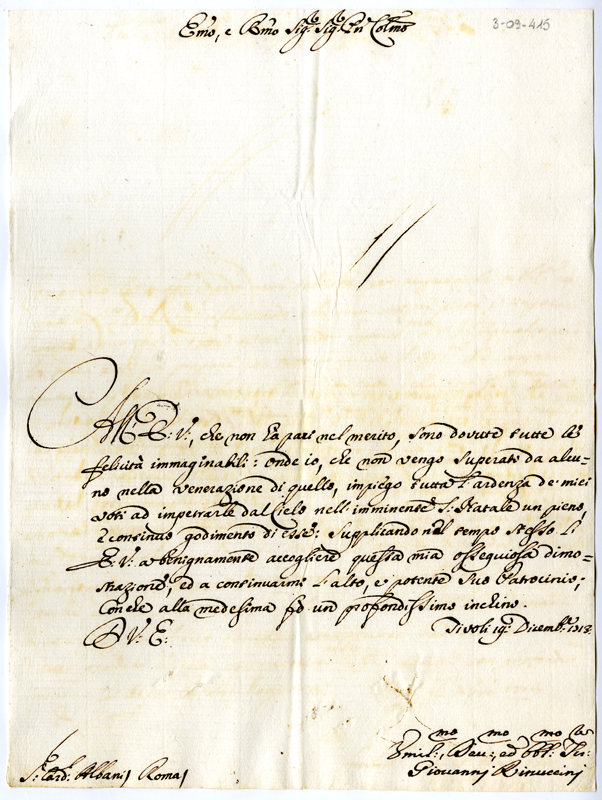 3-09-415
Emo, e Rmo Sig.re Sig.re Pn Colmo
All' E: V:, che non ha pari nel merito, sono dovute tutte le
felicità immaginabili: onde io, che non vengo superato da alcu-
no nella venerazione di quello, impiego tutta l'ardenza de' miei
voti ad impetrarle dal Cielo nell'imminente S. Natale un pieno,
e continuo godimento di esse: Supplicando nel tempo stesso l'
E: V: a benignamente accogliere questa mia ossequiosa dimo-
strazione, ed a continuarmi l'alto, e potente Suo Patrocinio;
Con che alla medesima fò un profondissimo inchino.
D V: E:
Tivoli 19 Dicembre 1718
S.r Card.l Albani / Roma /
Umil:mo, Dev:mo, ed Obb:mo Ser:re
Giovannj Rinuccinj